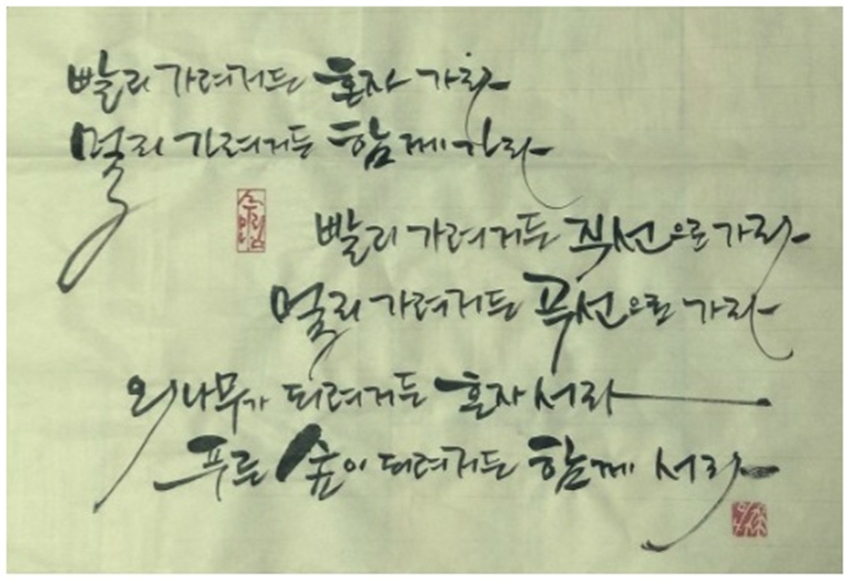 빨리 가려거든 혼자 가라
멀리 가려거든 함께 가라
빨리 가려거든 직선으로 가라
멀리 가려거든 곡선으로 가라
외나무가 되려거든 혼자 서라
푸른 숲이 되려거든 함께 서라